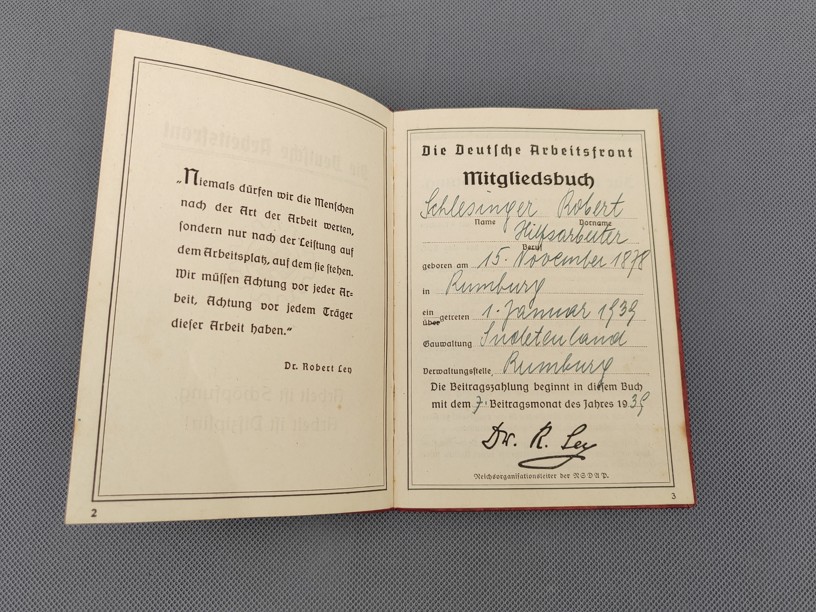 „Niemals dürfen wir die Menschen
nach der Art der Arbeit werten,
sondern nur nach der Leistung auf
dem Arbeitsplatz, auf dem sie stehen.
Wir müssen Achtung vor jeder Ar-
beit, Achtung vor jedem Träger
dieser Arbeit haben.“
Dr. Robert Ley
2
Die Deutsche Arbeitsfront
Mitgliedsbuch
Schlesinger Robert
Name Vorname
Hilfsarbeiter
Beruf
geboren am 15. November 1878
in Rumburg
ein
über getreten 1. Januar 1939
Gauwaltung Sudetenland
Verwaltungsstelle Rumburg
Die Beitragszahlung beginnt in diesem Buch
mit dem 7. Beitragsmonat des Jahres 1939
Dr. R. Ley
Reichsorganisationsleiter der NSDAP.
3